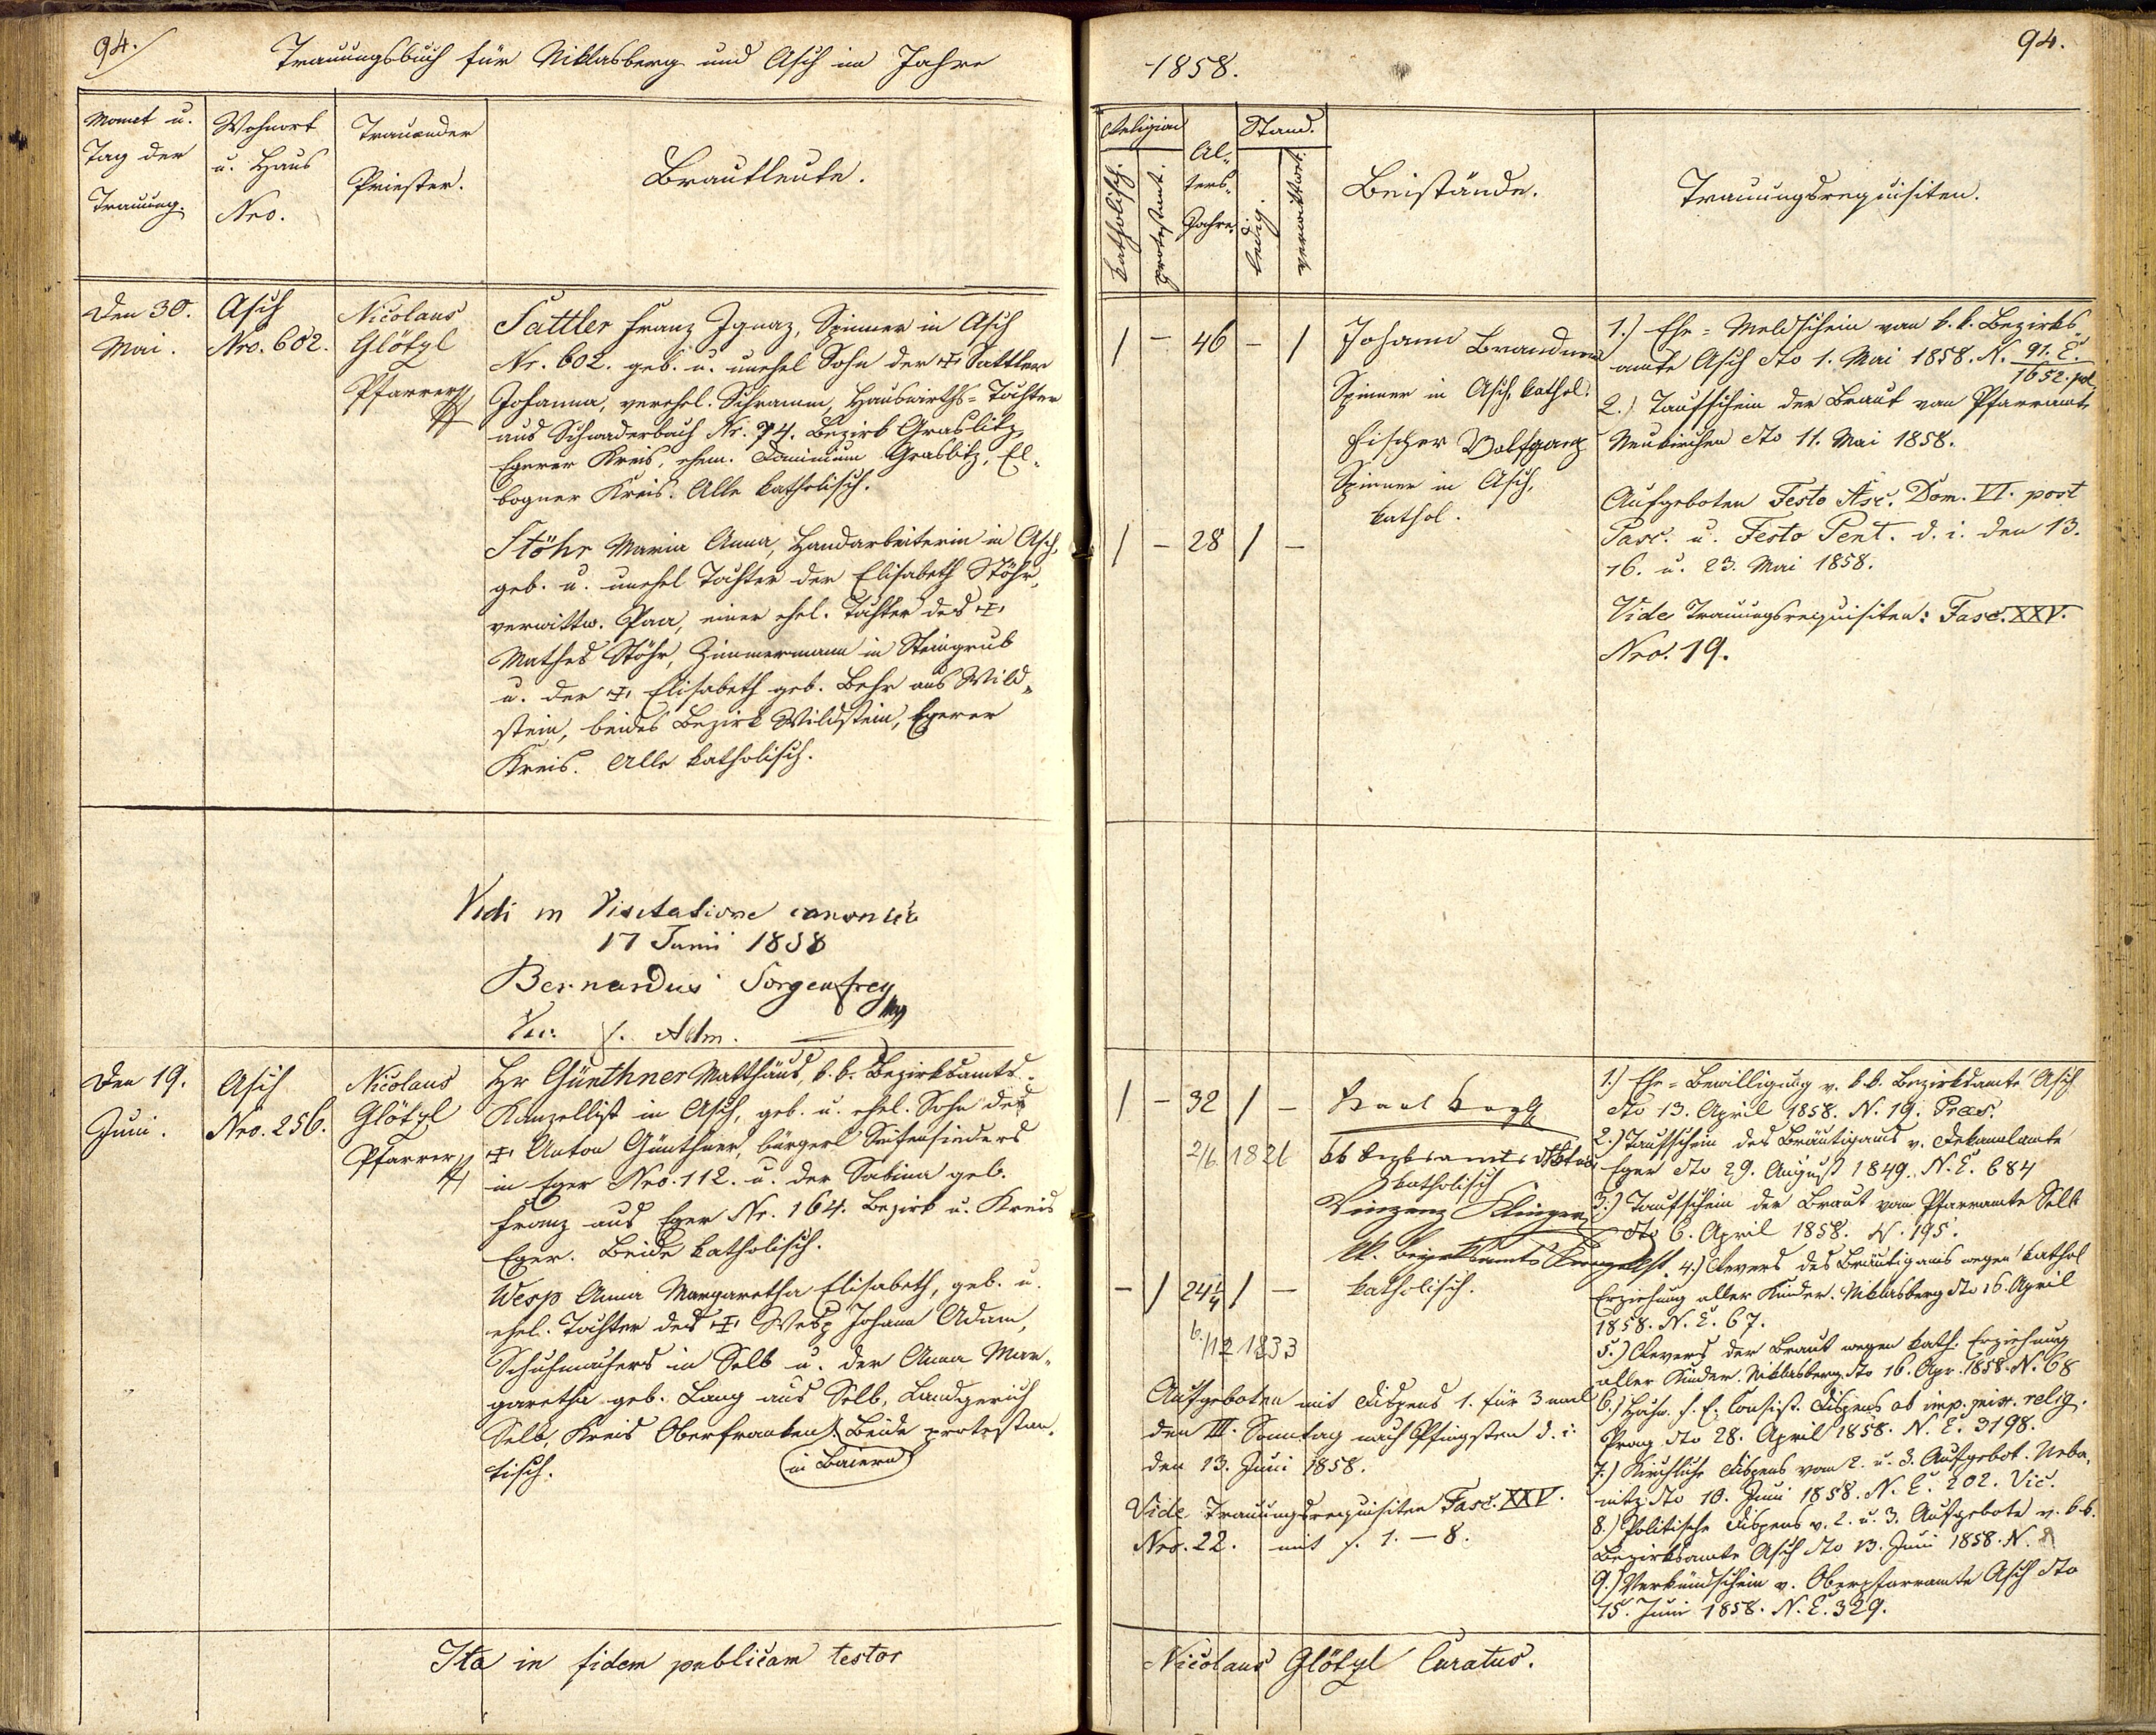 94./
Trauungsbuch für Niklasberg und Asch im Jahre
Monat u.
Tag der
Trauung.
Wohnort
u. Haus
Nro.
Trauender
Priester.
Brautleute.
Den 30.
Mai.
Asch
Nro. 602.
Nicolaus
Glötzl
Pfarrer
Sattler Franz Ignaz, Spinner in Asch
Nr. 602. geb. u. unehel Sohn der ✝ Sattler
Johanna, verehel. Schramm, Hauswirths-Tochter
aus Schwaderbach Nr. 74. Bezirk Graslitz,
Egerer Kreis, ehem. Dominium Graslitz, El-
bogner Kreis. Alle katholisch.
Stöhr Maria Anna, Handarbeiterin in Asch,
geb. u. unehel Tochter der Elisabeth Stöhr,
verwittw. Paa, einer ehel. Tochter des ✝
Mathes Stöhr, Zimmermann in Steingrub
u. der ✝ Elisabeth geb. Behr aus Wild-
stein, beides Bezirk Wildstein, Egerer
Kreis. Alle katholisch.
Vidi in Visitatione canonica
17 Junii 1858
Bernardus Sorgenfrey
Vic. f. Adm.
Den 19.
Juni.
Asch
Nro. 256.
Nicolaus
Glötzl
Pfarrer
Hr Günthner Matthäus, k. k. Bezirksamts-
Kanzellist in Asch, geb. u. ehel. Sohn des
✝ Anton Günthner, bürgerl Seifensieders
in Eger Nro. 112. u. der Sabina geb.
Franz aus Eger Nr. 164. Bezirk u. Kreis
Eger. Beide katholisch.
Wesp Anna Margaretha Elisabeth, geb. u.
ehel. Tochter des ✝ Wesp Johann Adam,
Schuhmachers in Selb u. der Anna Mar-
garetha geb. Lang aus Selb, Landgerich
Selb, Kreis Oberfranken. Beide protestan-
tisch.
in Baiern
Ita in fidem publicam testor
1858.
94.
Religion
katholisch.
protestant.
Al-
ters-
Jahre.
Stand.
ledig.
verwittwet.
Beistände.
Trauungsrequisiten.
1 - 46 - 1
Johann Brandner
Spinner in Asch, kathol.
Fischer Wolfgang
Spinner in Asch,
kathol.
1 - 28 1 -
1.) Ehe-Meldschein vom k. k. Bezirks-
amte Asch dto 1. Mai 1858. N. 91. E. / 1652. pol.
2.) Taufschein der Braut vom Pfarramte
Neukirchen dto 11. Mai 1858.
Aufgeboten Festo Asc. Dom. VI. post
Pasc. u. Festo Pent. d. i. den 13.
16. u. 23. Mai 1858.
Vide Trauungsrequisiten: Fasc. XXV.
Nro. 19.
1 - 32 1 -
2/6. 1826
katholisch
Vinzenz Klinger
kk. Bezirksamts Kanzelist
katholisch.
- 1 24 1/4 1 -
6./12 1833
Aufgeboten mit Dispens 1. für 3 mal
den III. Sonntag nach Pfingsten d. i.
den 13. Juni 1858.
Vide Trauungsrequisiten Fasc. XXV.
Nro. 22. mit f. 1. - 8.
1.) Ehe-Bewilligung v. k. k. Bezirksamte Asch
dto 13. April 1858. N. 19. Praes.
2.) Taufschein des Bräutigams v. Dekanalamte
Eger dto 29. August 1849. N. E. 684
3.) Taufschein der Braut vom Pfarramte Selb
dto 6. April 1858. N. 195.
4.) Revers des Bräutigams wegen kathol
Erziehung aller Kinder. Niklasberg dto 16. April
1858. N. E. 67.
5.) Revers der Braut wegen kath. Erziehung
aller Kinder. Niklasberg dto 16. Apr. 1858. N. 68
6.) Hochw. f. E. Consist. Dispens ab imp. mix. relig.
Prag dto 28. April 1858. N. E. 3198.
7.) Kirchliche Dispens vom 2. u. 3. Aufgebot. Neba-
nitz dto 10. Juni 1858. N. E. 202. Vic.
8.) Politische Dispens v. 2. u. 3. Aufgebote v. k. k.
Bezirksamte Asch dto 13. Juni 1858. N.
9.) Verkündschein v. Oberpfarramte Asch dto
15. Juni 1858. N. E. 329.
Nicolaus Glötzl Curatus.